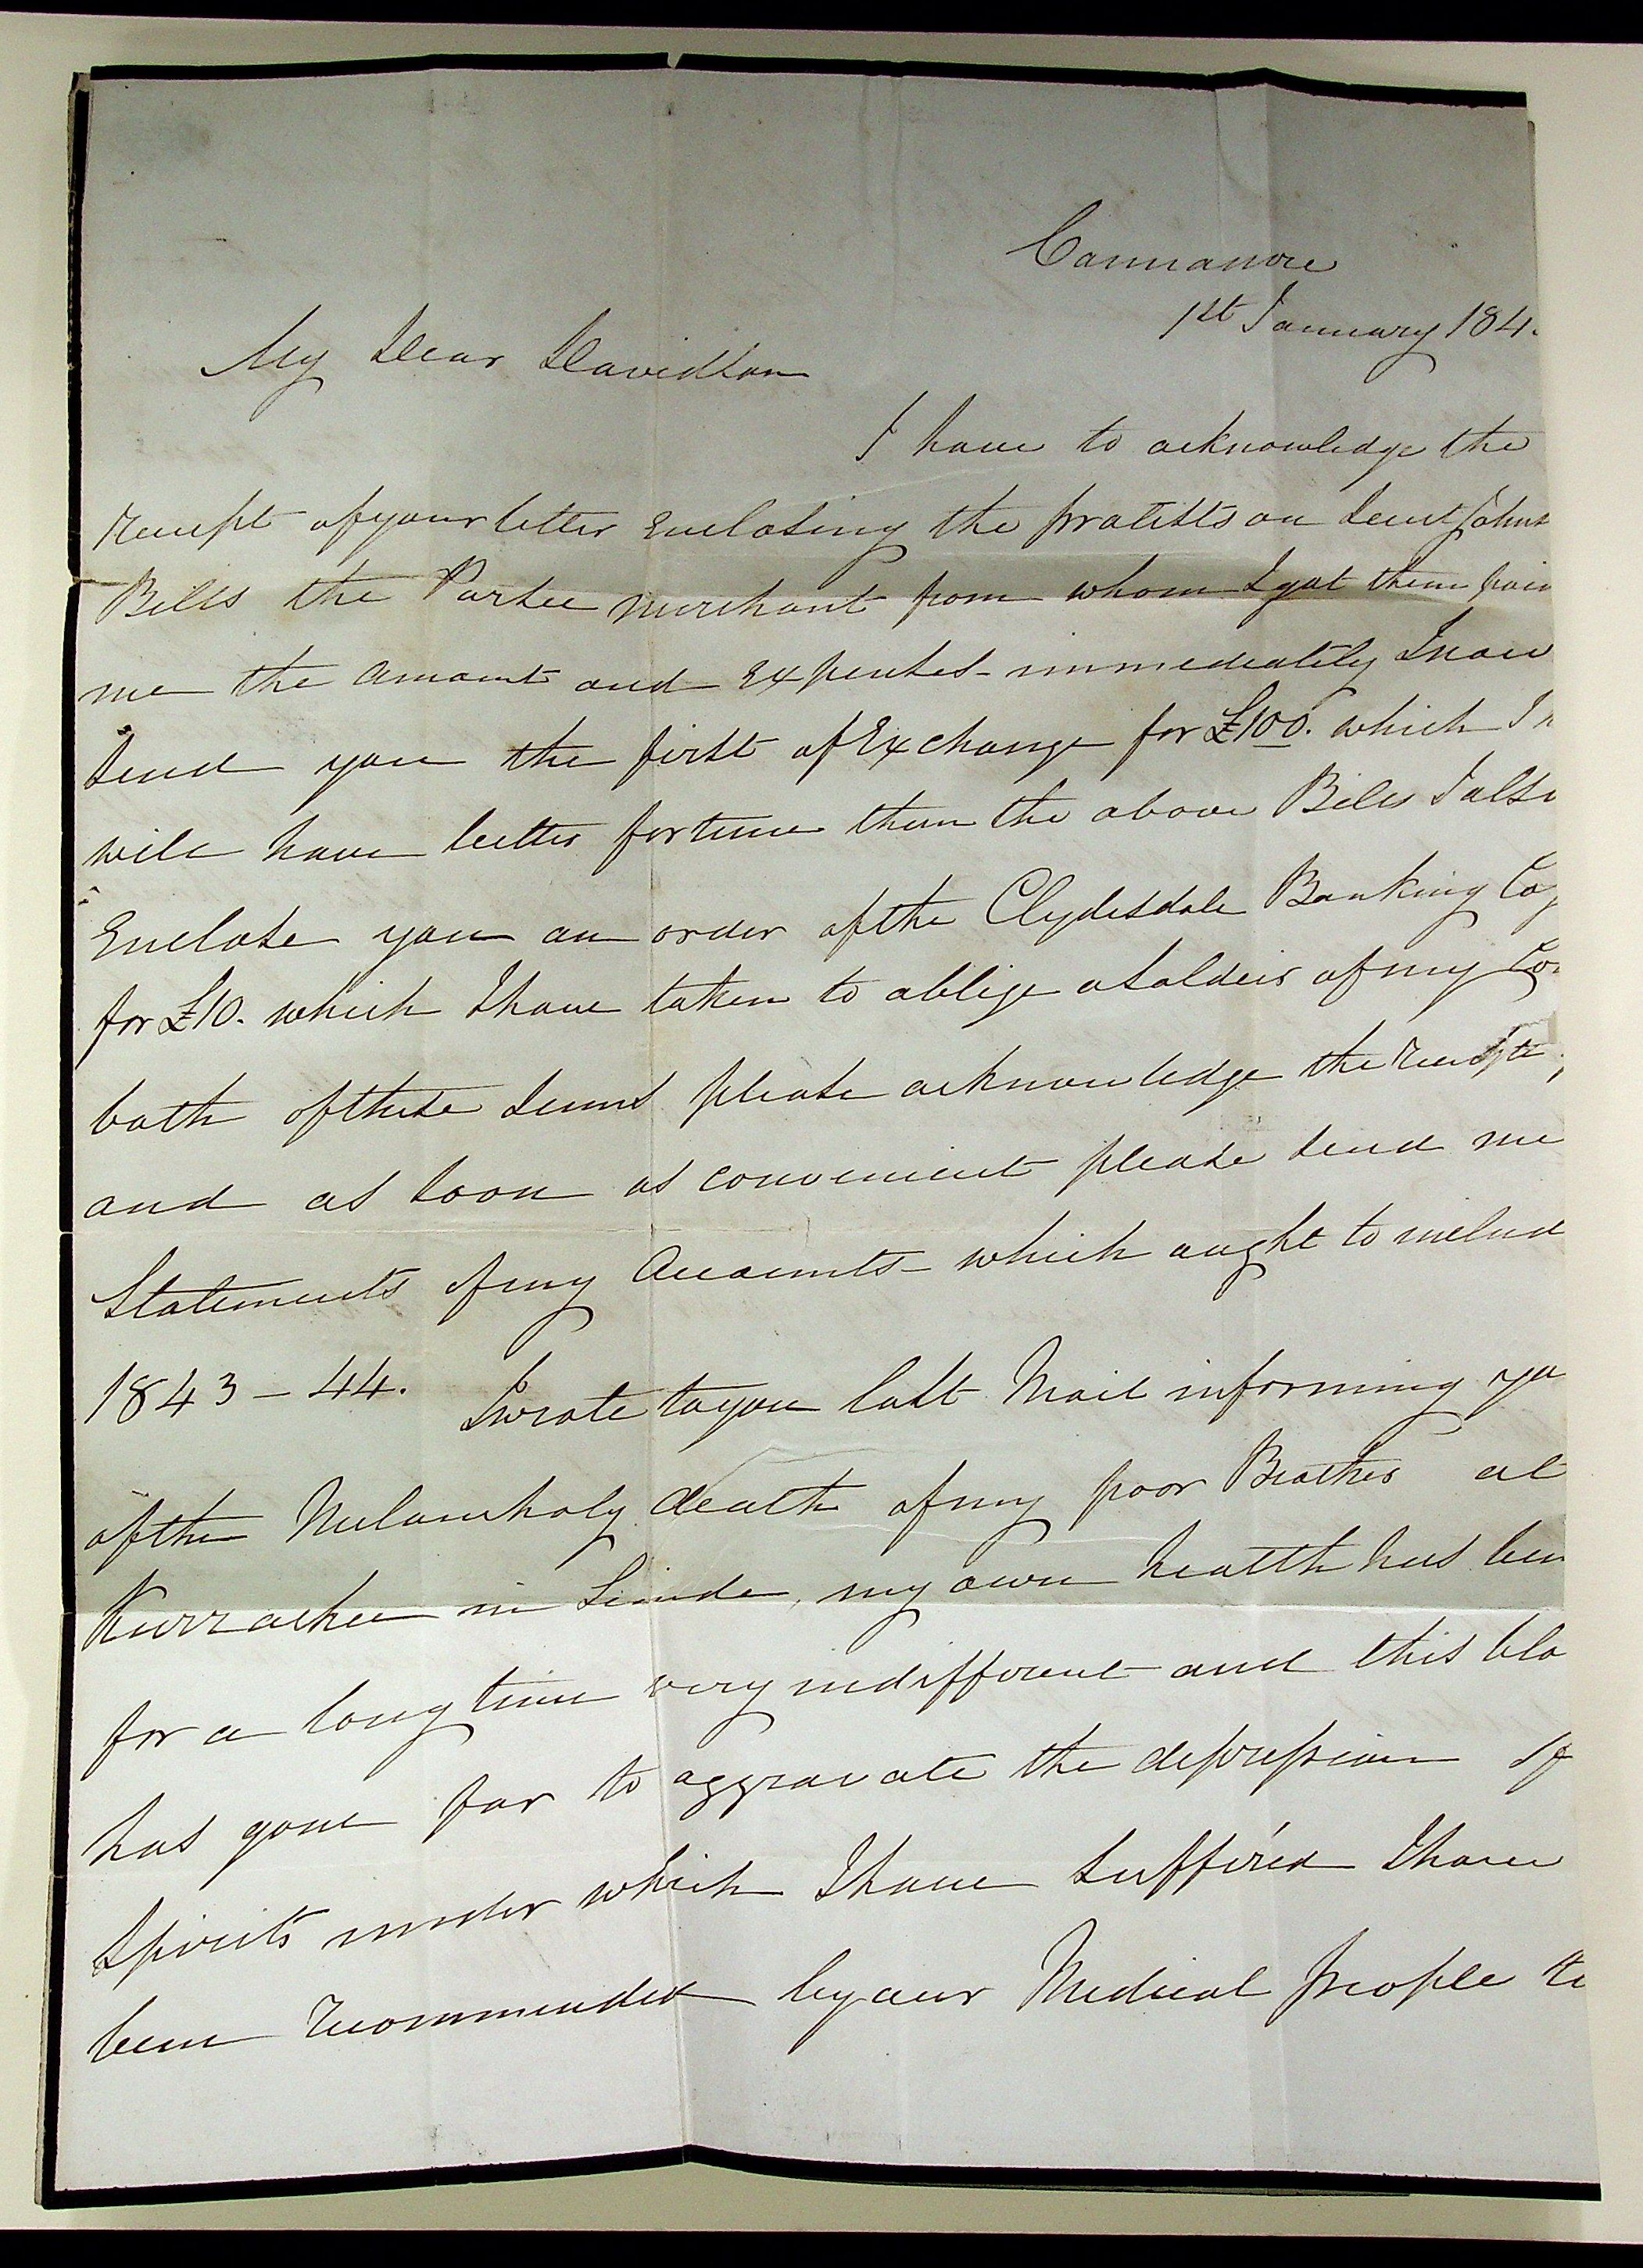 Cannanore
1st January 184
My Dear Davidson
I have to acknowledge the
receipt of your letter Enclosing the protests on Lieut Johns
Bills the Parsee merchant from whom I got them paid
me the amount and Expenses - immediately I now
send you the first of Exchange for £100. which I
will have better fortune than the above Bills I also
Enclose you an order of the Clydesdale Banking Coy
for £10. which I have taken to oblige a Soldeir of my Co
both of these sums please acknowledge the receipt
and as soon as convenient please send me
Statements of my Accounts - which ought to includ
1843 - 44. I wrote to you last Mail informing yo
of the Melancholy death of my poor Brother at
Kurrachee in Scinde, my own health has been
for a long time very indifferent and this blo
has gone far to aggravate the depression of
Spirits under which I have suffer'd I have
been recommended by our Medical people to